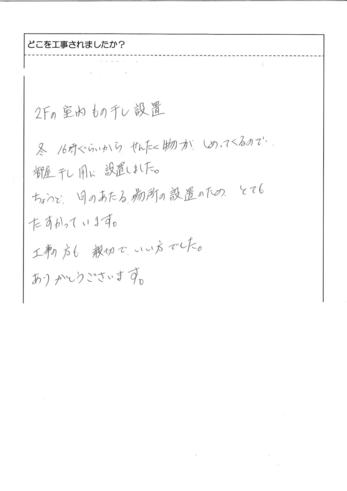 どこを工事されましたか？
2Fの室内もの干し設置
冬 16時ぐらいからせんたく物がしめってくるので、
部屋干し用に設置しました。
ちょうど、日のあたる場所の設置のため とても
たすかっています。
工事の方も 親切で いい方でした。
ありがとうございます。